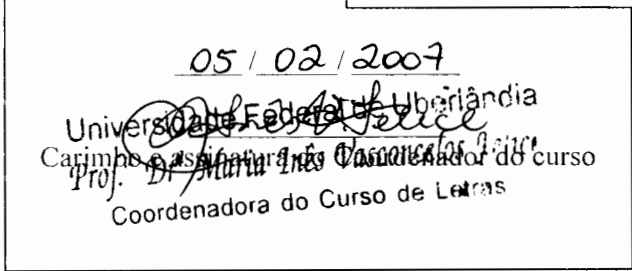 05 / 02 / 2007
Universidade Federal de Uberlândia
Carimbo e assinatura do Coordenador do curso
Prof. Dr Maria Inês Vasconcelos Felice
Coordenadora do Curso de Letras